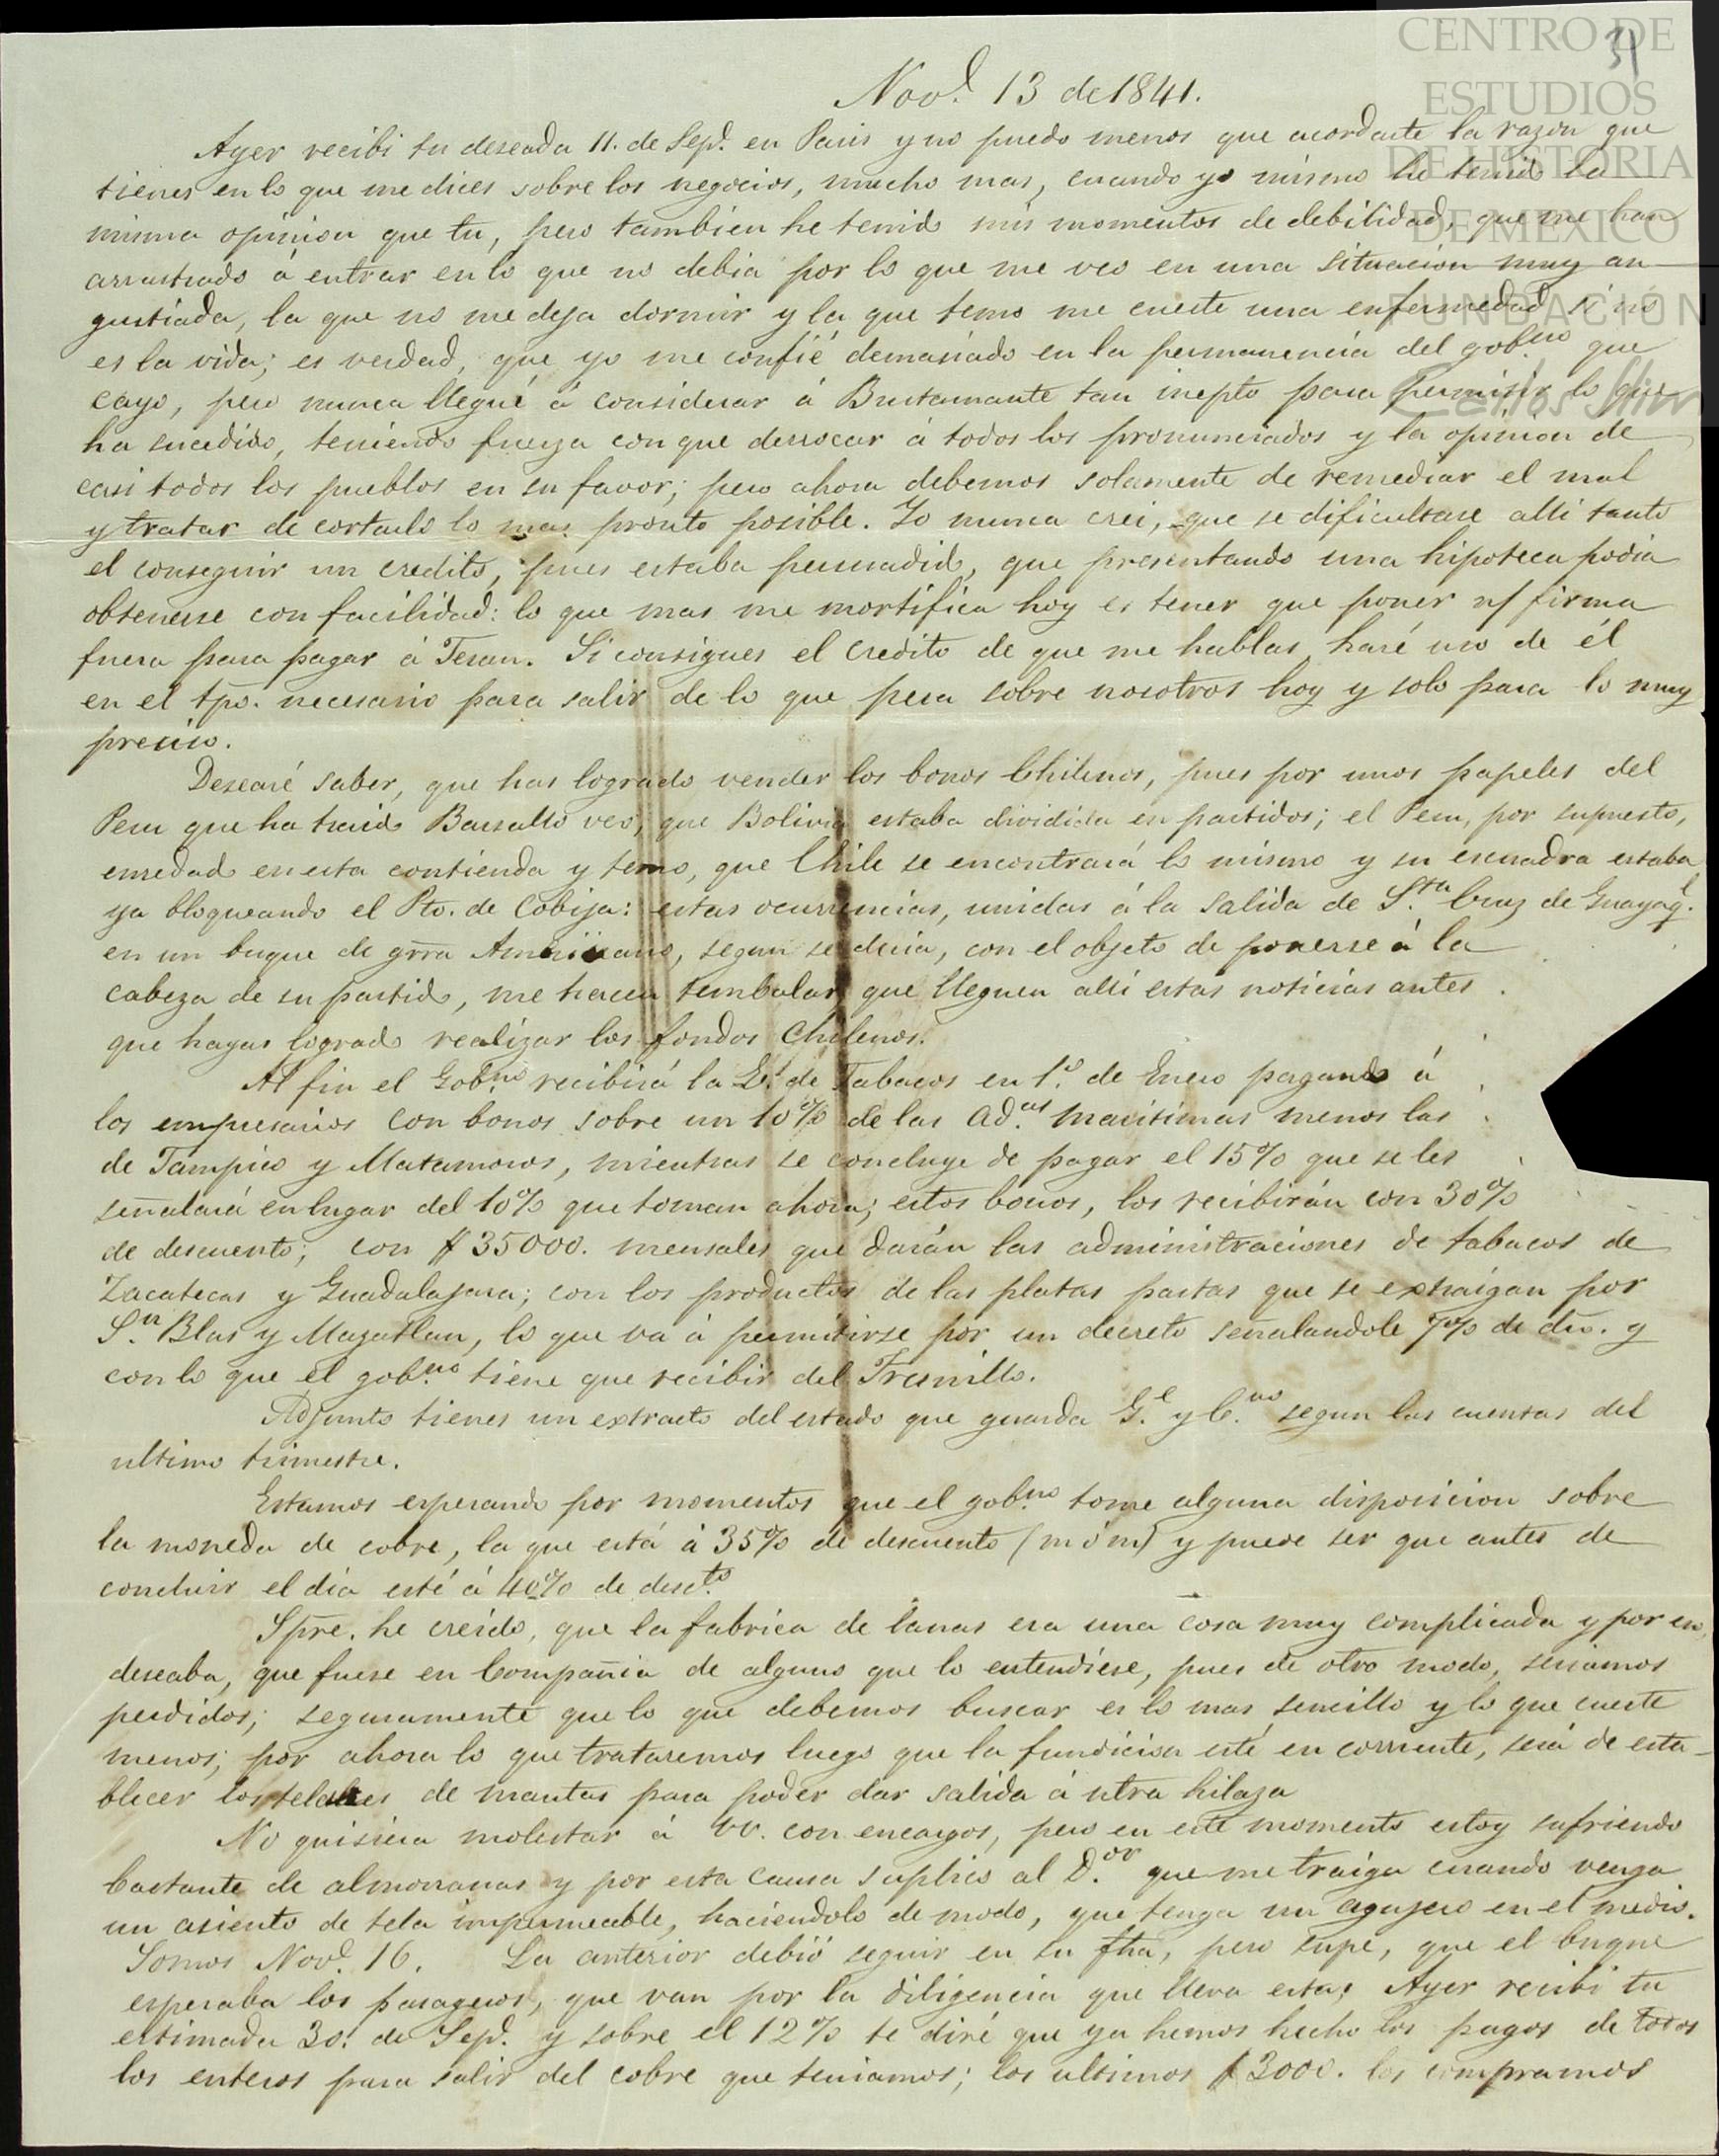 CENTRO DE
ESTUDIOS
DE HISTORIA
DE MEXICO
FUNDACIÓN
Carlos Slim
31
Novᵉ. 13 de 1841.
Ayer recibi tu deseada 11. de Sepᵉ. en Paris y no puedo menos que acordarte la razon que
tienes en lo que me dices sobre los negocios, mucho mas, cuando yo mismo he tenido la
misma opinion que tu, pero tambien he tenido mis momentos de debilidad, que me han
arrastrado á entrar en lo que no debia por lo que me veo en una situacion muy an
gustiada, la que no me deja dormir y la que temo me cueste una enfermedad si no
es la vida; es verdad, que yo me confié demasiado en la permanencia del gobⁿᵒ que
cayo, pero nunca llegué á considerar á Bustamante tan inepto para permitir lo que
ha sucedido, teniendo fuerza con que derrocar á todos los pronunciados y la opinion de
casi todos los pueblos en su favor; pero ahora debemos solamente de remediar el mal
y tratar de cortarlo lo mas pronto posible. Yo nunca crei, que se dificultase alli tanto
el conseguir un credito, pues estaba persuadido, que presentando una hipoteca podia
obtenerse con facilidad: lo que mas me mortifica hoy es tener que poner n/ firma
fuera para pagar á Teran. Si consigues el credito de que me hablas, haré uso de él
en el tpo. necesario para salir de lo que pesa sobre nosotros hoy y solo para lo muy
preciso.
Desearé saber, que has logrado vender los bonos Chilenos, pues por unos papeles del
Peru que ha traido Basallo veo, que Bolivia estaba dividida en partidos; el Peru, por supuesto,
enredado en esta contienda y temo, que Chile se encontrará lo mismo y su escuadra estaba
ya bloqueando el Pto. de Cobija: estas ocurrencias, unidas á la salida de Sᵗᵃ. Cruz de Guayaqˡ.
en un buque de grra Americano, segun se decia, con el objeto de ponerse á la
cabeza de su partido, me hacen temblar, que lleguen alli estas noticias antes
que hayas logrado realizar los fondos Chilenos.
Al fin el Gobⁿᵒ recibirá la de Tabacos en 1º. de Enero pagando á
los empresarios con bonos sobre un 10% de las Adᵃˢ. maritimas menos las
de Tampico y Matamoros, mientras se concluye de pagar el 15% que se les
señalará en lugar del 10% que toman ahora; estos bonos, los recibirán con 30%
de descuento; con $ 35000. mensales que darán las administraciones de tabacos de
Zacatecas y Guadalajara; con los productos de las platas pastas que se extraigan por
Sⁿ. Blas y Mazatlan, lo que va á permitirse por un decreto señalandole 7% de dro. y
con lo que el gobⁿᵒ tiene que recibir del Fresnillo.
Adjunto tienes un extracto del estado que guarda G.ᵉ y C.ⁿᵒ segun las cuentas del
ultimo trimestre.
Estamos esperando por momentos que el gobⁿᵒ tome alguna disposicion sobre
la moneda de cobre, la que está á 35% de descuento (m ó m) y puede ser que antes de
concluir el dia esté á 40% de descᵗᵒ.
Spre. he creido, que la fabrica de lanas era una cosa muy complicada y por eso,
deseaba, que fuese en Compañia de alguno que lo entendiese, pues de otro modo, seriamos
perdidos; seguramente que lo que debemos buscar es lo mas sencillo y lo que cueste
menos; por ahora lo que trataremos luego que la fundicion esté en corriente, será de esta-
blecer los telares de mantas para poder dar salida á ntra hilaza
No quisiera molestar á VV. con encargos, pero en este momento estoy sufriendo
bastante de almorranas y por esta causa suplico al D.ᵒʳ que me traiga cuando venga
un asiento de tela impermeable, haciendolo de modo, que tenga un agujero en el medio.
Somos Novᵉ. 16. La anterior debió seguir en su fha, pero supe, que el buque
esperaba los pasageros, que van por la diligencia que lleva esta; Ayer recibi tu
estimada 30. de Sepᵉ. y sobre el 12% te diré que ya hemos hecho los pagos de todos
los enteros para salir del cobre que teniamos; los ultimos $ 3000. los compramos